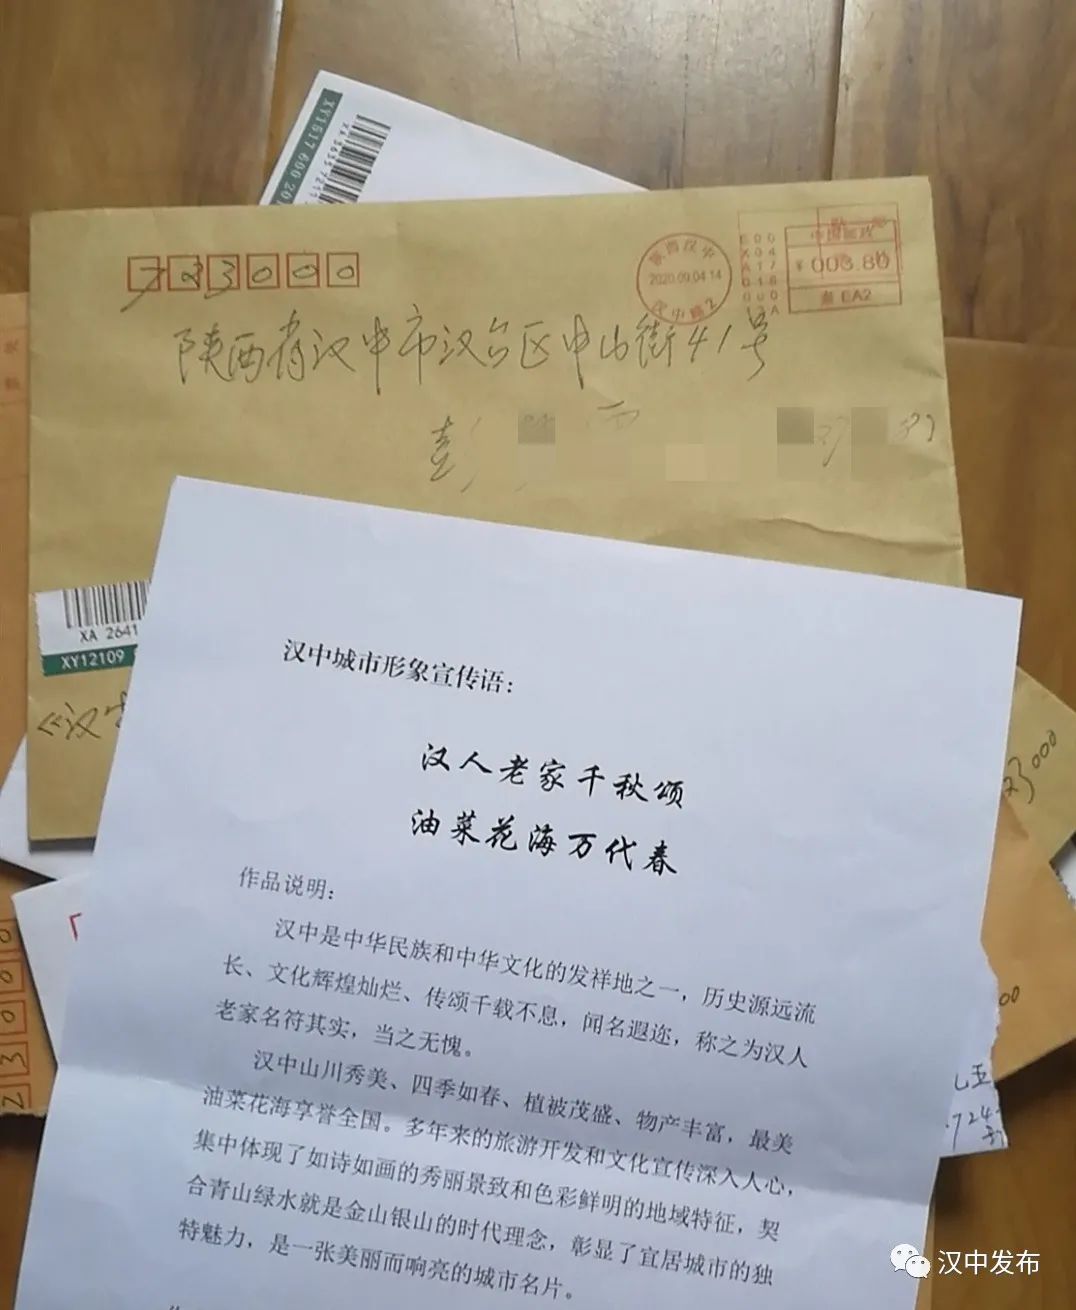 XY1517 600 20
723000
陕西汉中
2020.09.04 14
汉中城2
中国邮政
¥ 003.80
EA2
陕西省汉中市汉台区中山街41号
彭
XA 2641
XY12109
《汉中
汉中城市形象宣传语：
汉人老家千秋颂
油菜花海万代春
作品说明：
汉中是中华民族和中华文化的发祥地之一，历史源远流
长、文化辉煌灿烂、传颂千载不息，闻名遐迩，称之为汉人
老家名符其实，当之无愧。
汉中山川秀美、四季如春、植被茂盛、物产丰富，最美
油菜花海享誉全国。多年来的旅游开发和文化宣传深入人心，
集中体现了如诗如画的秀丽景致和色彩鲜明的地域特征，契
合青山绿水就是金山银山的时代理念，彰显了宜居城市的独
特魅力，是一张美丽而响亮的城市名片。
汉中发布